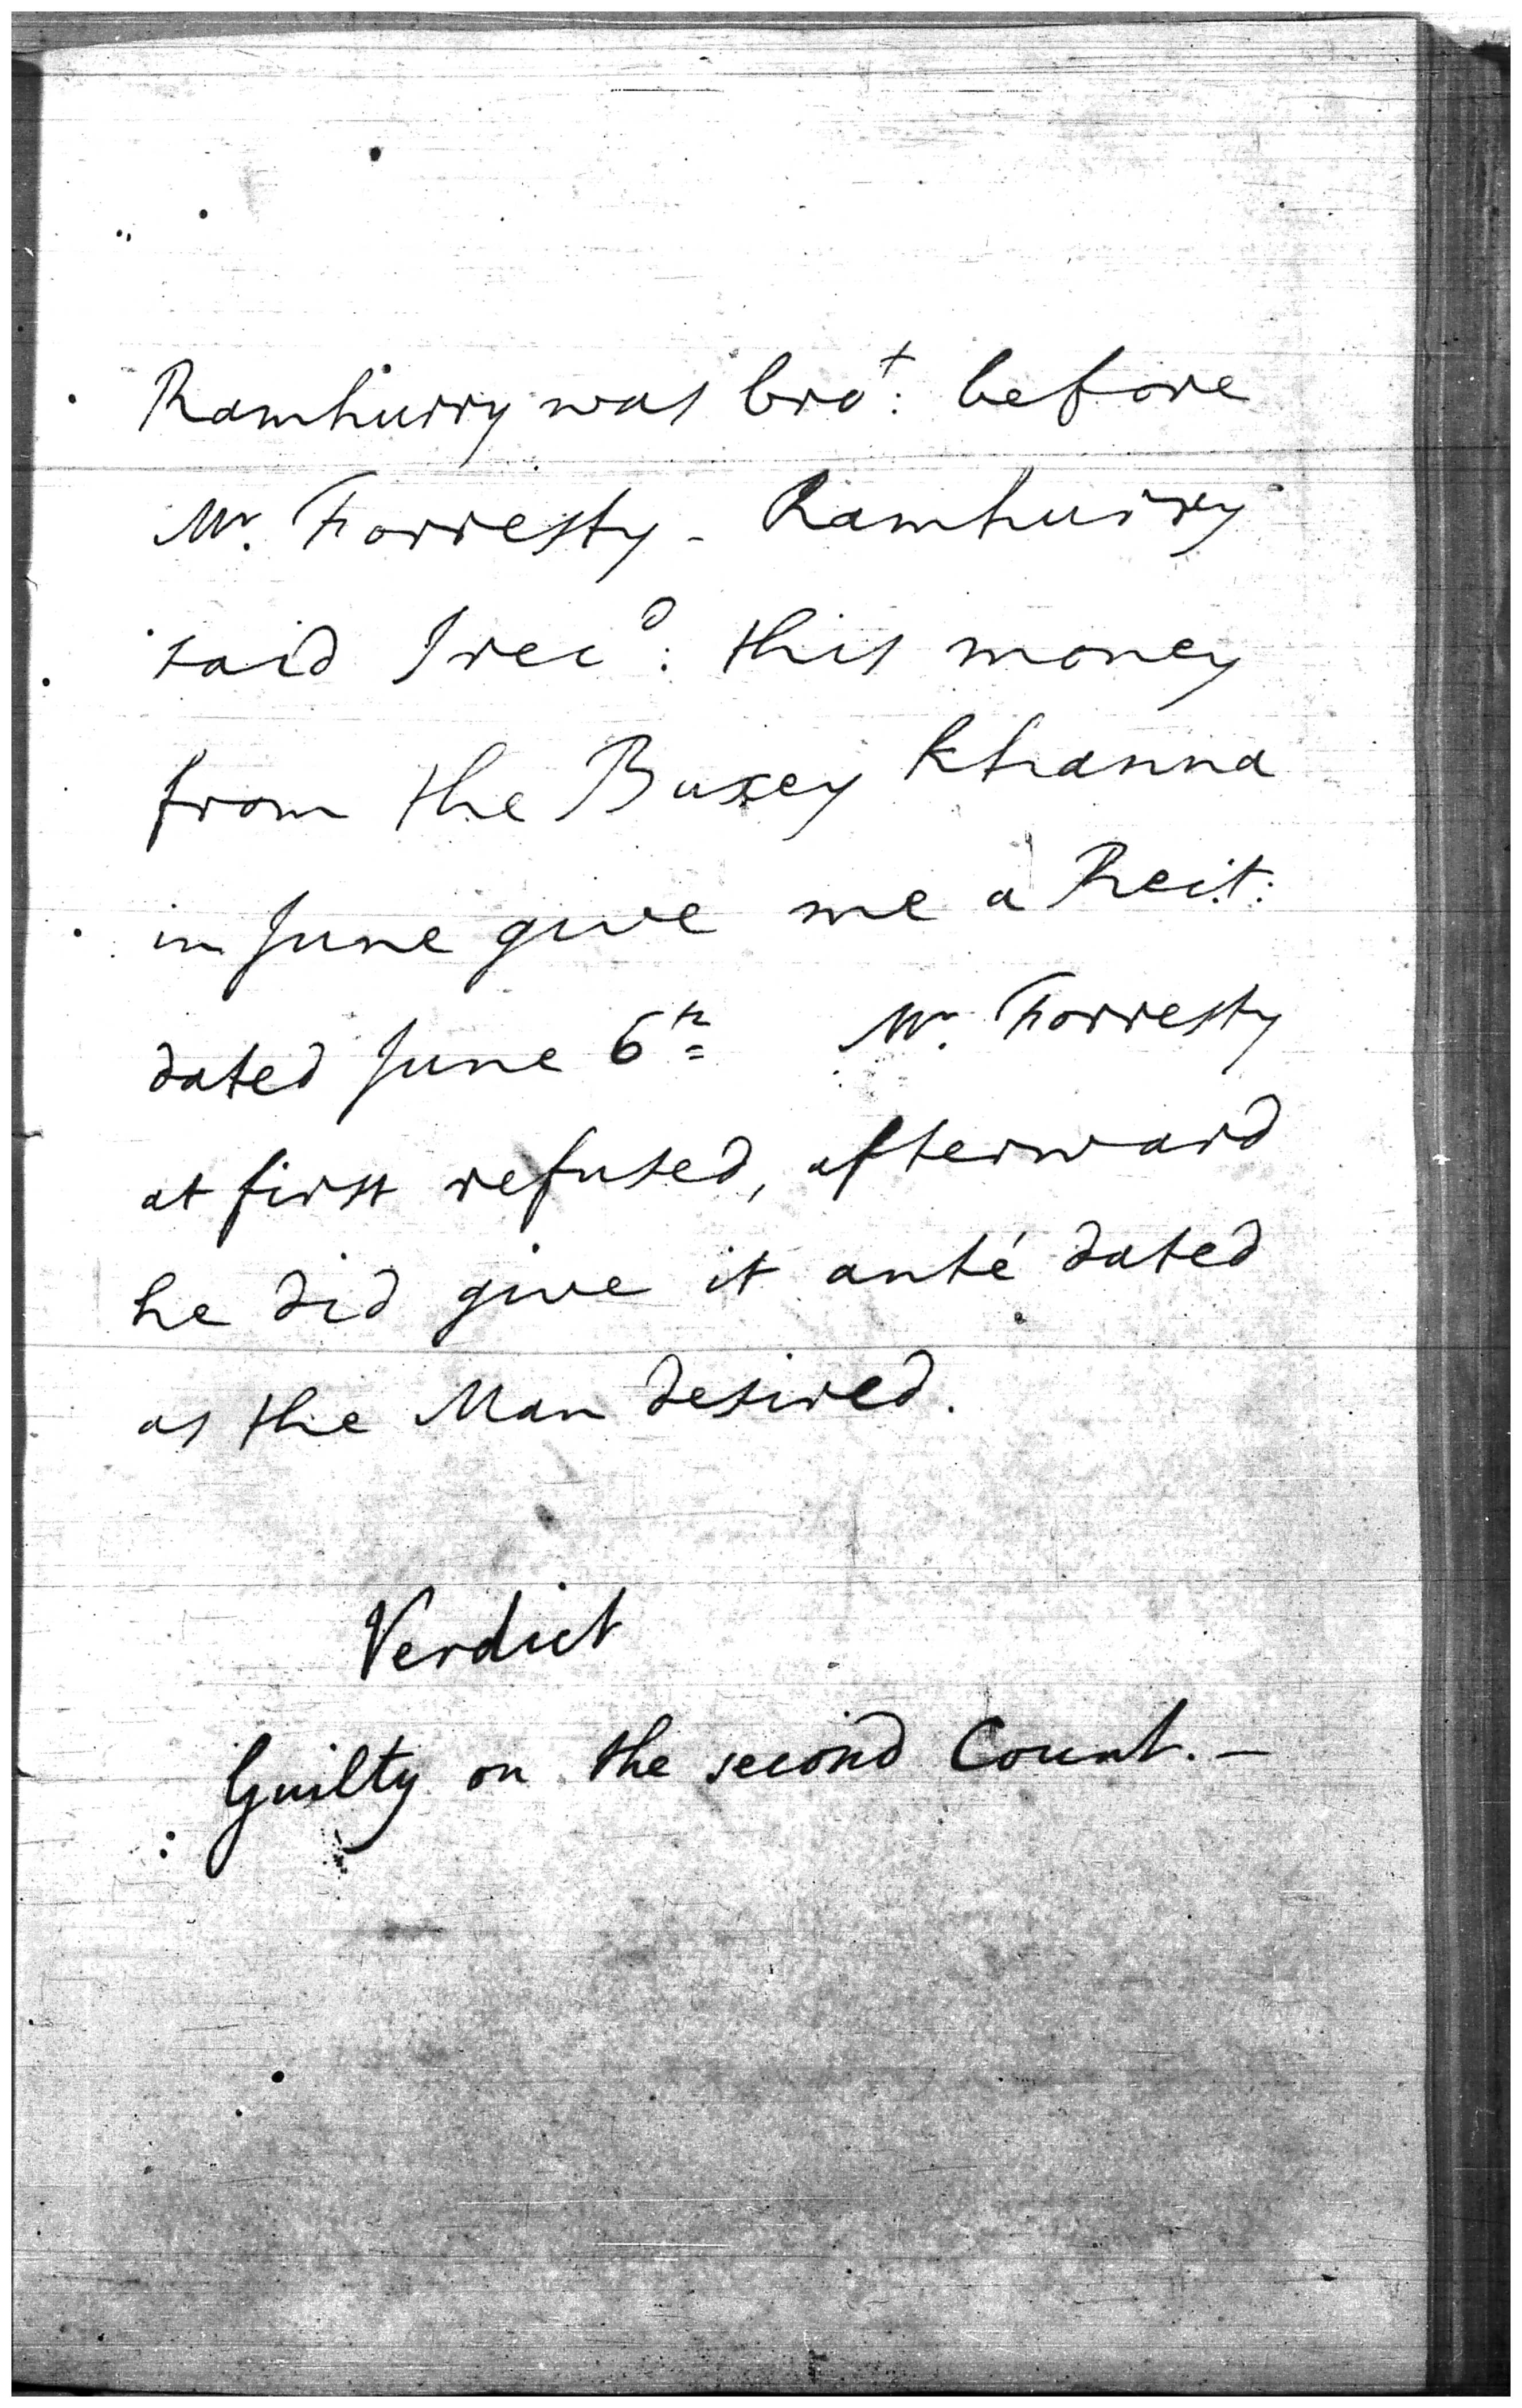 Ramhurry was bro^t: before
Mr. Forresty - Ramhurry
said I rec^d: this money
from the Buxey Khanna
in June give me a Reit:
dated June 6^th Mr. Forresty
at first refused, afterward
he did give it anté dated
as the Man desired.
Verdict
Guilty on the second Count. -